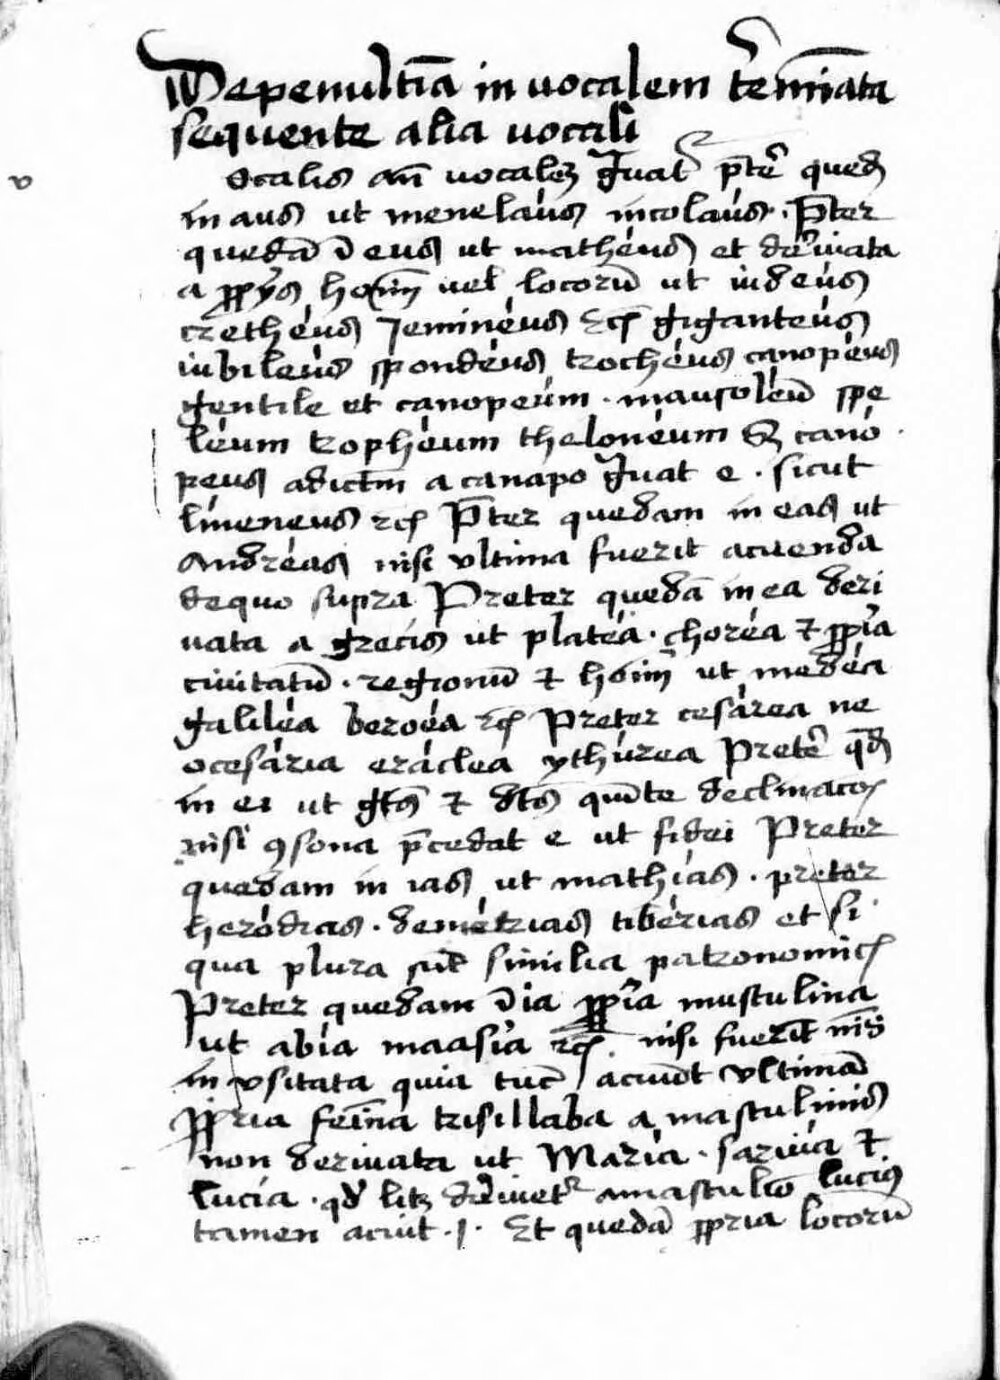 De penultīa in vocalem t̄mīata
sequente alia vocali
v
ocalis an̄ vocalē g̃uat᷑ p̄t̄ qued̄
in aus ut menelaús nicolaús. P̄ter
quedā ī eus ut mathéus et deriuata
a pp̄ys hoīm uel locorū ut iudeús
crethéus Jemineús rc̄ giganteús
iubileús spondéus trochéus canopéus
gentile et canopeúm. mausoléū spe
léum trophéum thelonéum Sz canó
peus adictm̄ a canapo g̃uat e. sicut
lineneus rc̄ P̄ter quedam in eas ut
Andréas nisi vltima fuerit acuenda
de quo supra Preter quedā in ea deri
uata a grecis ut platéa. choréa ⁊ pp̄ia
ciuitatū. regionū ⁊ hoīm ut medéa
galiléa beroéa rc̄ Preter cesárea ne
ocesária eráclea ythúrea Pret̄ qd̄
in ei ut gt̄s ⁊ dt̄s quīte declinacōs
nisi ꝯsona p̄cedat e ut fidei Preter
quedam in ias ut mathías. preter
heródias. demétrias tibérias et si
qua plura sūt similia patronomic̄
Preter quedam ī ia pp̄ia masculina
ut abía maasía rc̄. nisi fuerit nīs
in vsitata quia tūc acuūt vltimā
pp̄ria femīna trisillaba a masculinis
non deriuata ut María. saruía ⁊
lucía. qd̄ licz deriuet᷑ a masculīo lucius
tamen acuit .i. Et quedā pp̄ria locorū